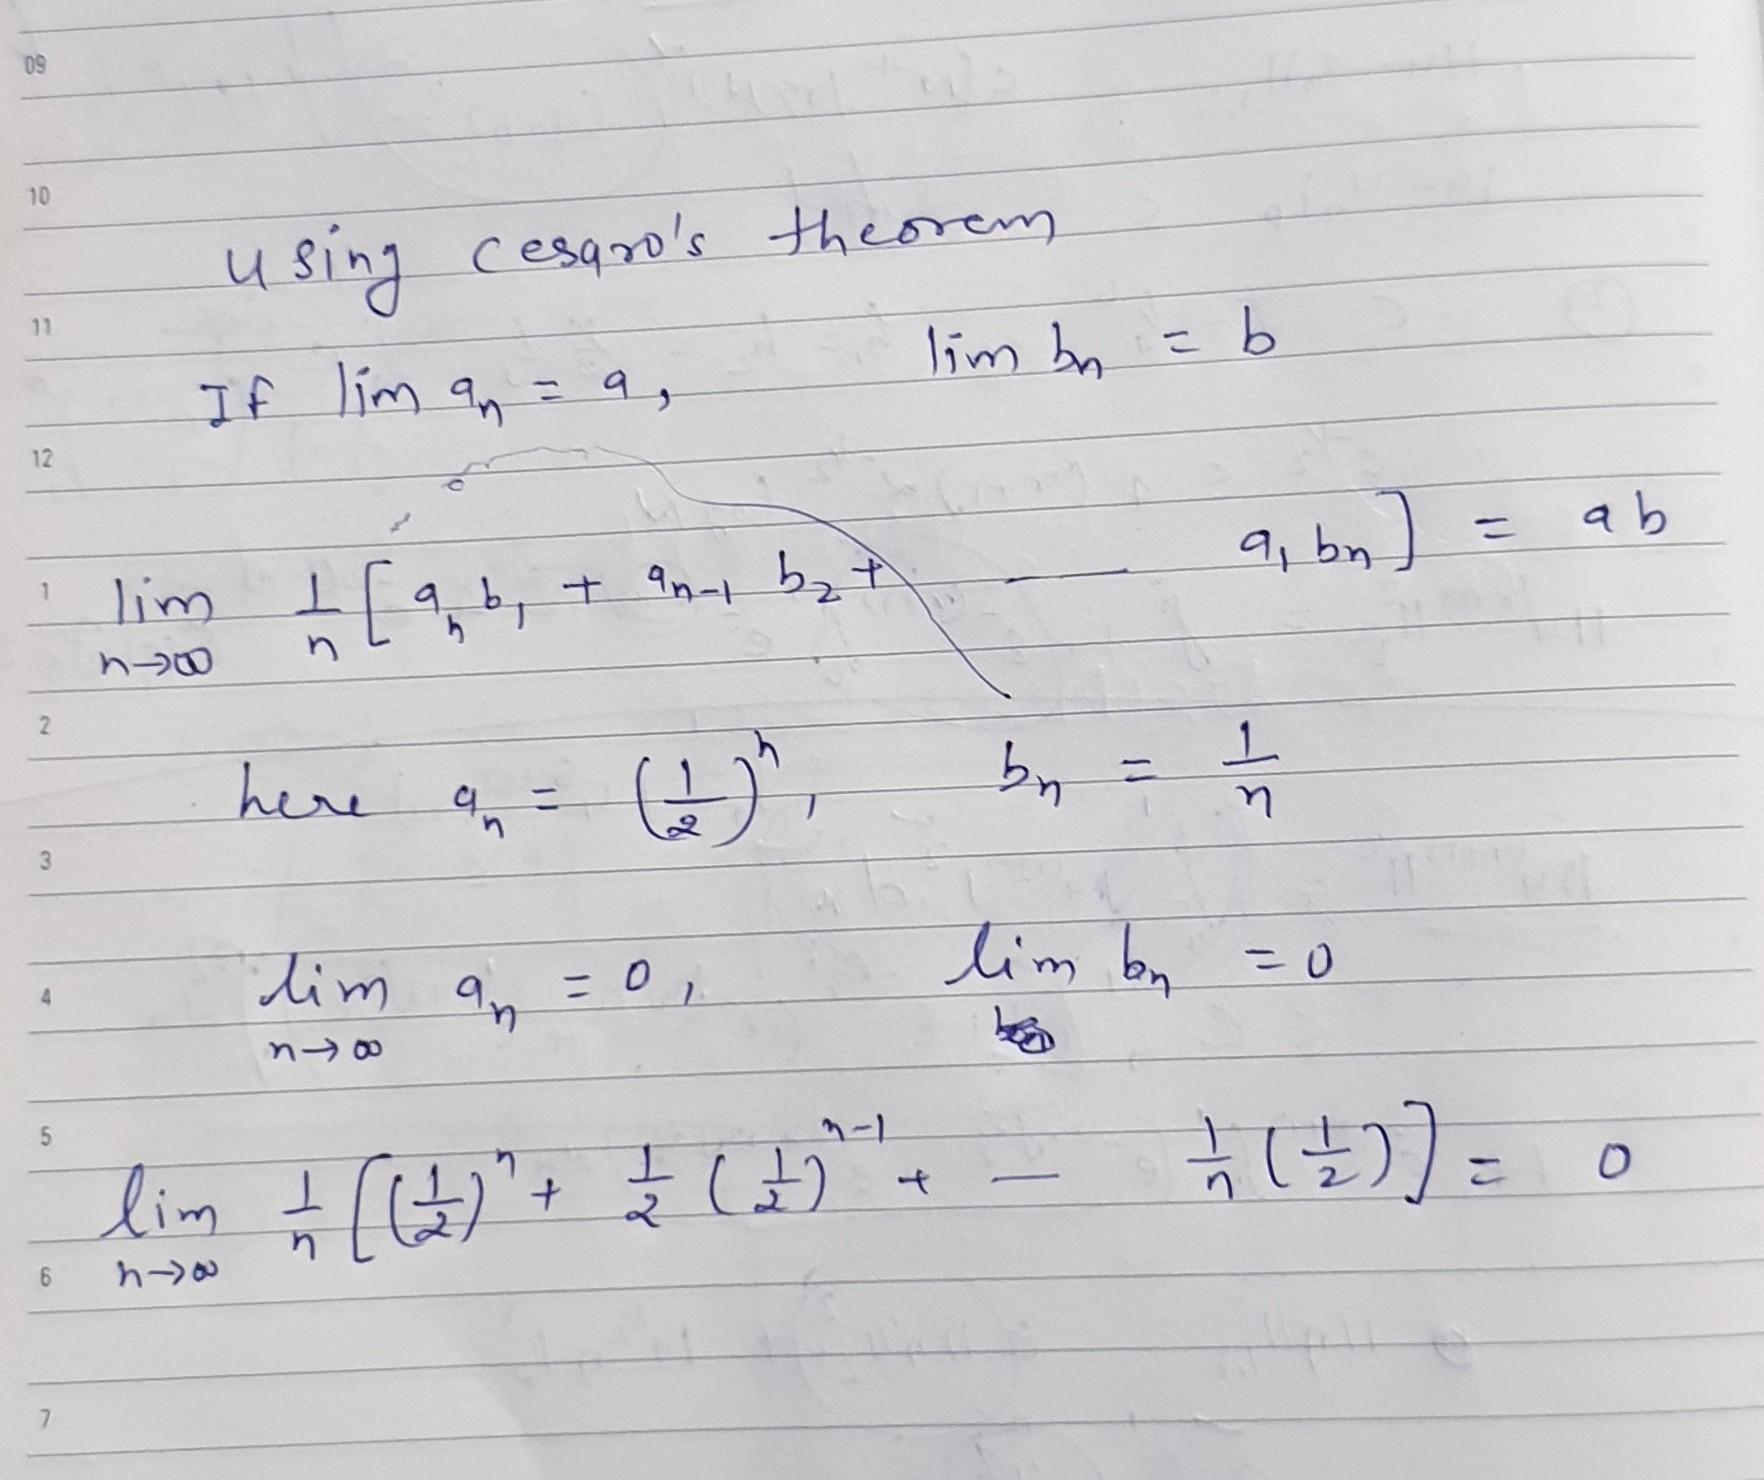 09
10
using cesaro's theorem
11
If lim aₙ = a, lim bₙ = b
12
1 lim n→∞ 1/n [aₙ b₁ + aₙ₋₁ b₂ + — — a₁ bₙ] = ab
2
here aₙ = (1/2)ⁿ, bₙ = 1/n
3
4 lim n→∞ aₙ = 0, lim bₙ = 0
5
lim n→∞ 1/n [(1/2)ⁿ + 1/2 (1/2)ⁿ⁻¹ + — 1/n (1/2)] = 0
6
7